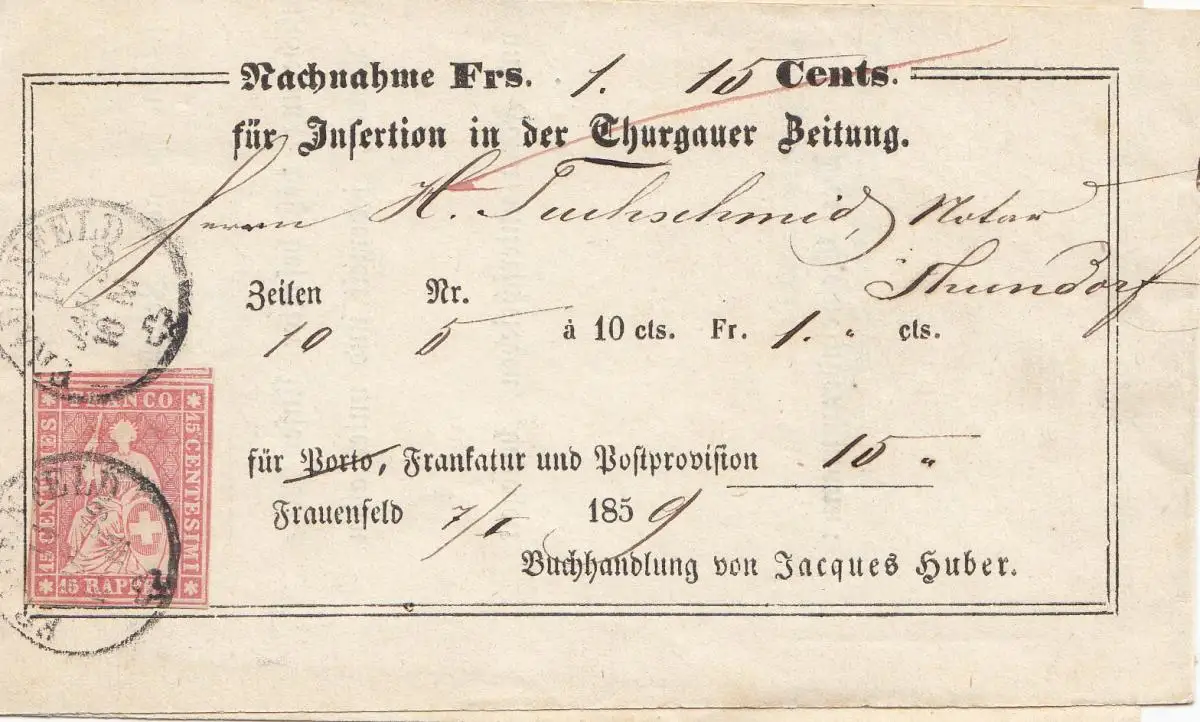 Nachnahme Frs. 1. 15 Cents.
für Insertion in der Thurgauer Zeitung.
Herrn H. Tuchschmid, Notar
Thundorf
Zeilen Nr.
10 5 à 10 cts. Fr. 1. " cts.
für Porto, Frankatur und Postprovision 15 "
Frauenfeld 7/1 1859
Buchhandlung von Jacques Huber.
FRAUENFELD
14 JAN 59
10
FRANCO
15 CENTIMES
15 CENTESIMI
15 RAPPEN
FRAUENFELD